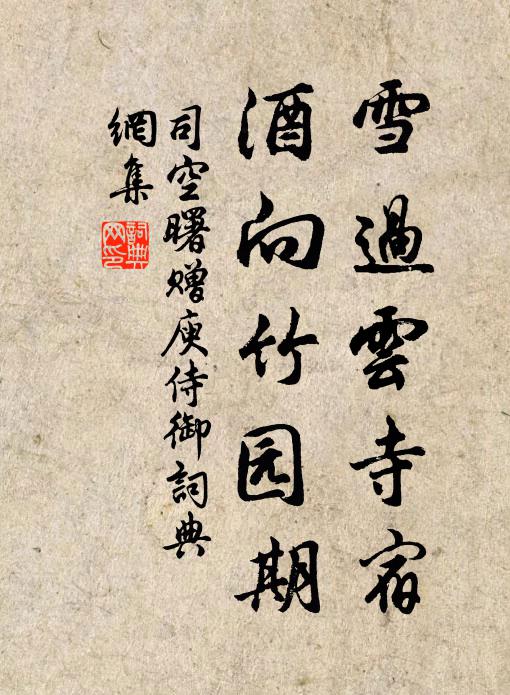 雪過雲寺宿
酒向竹园期
司空曙赠庾侍御詞典
網集
詞典
网印